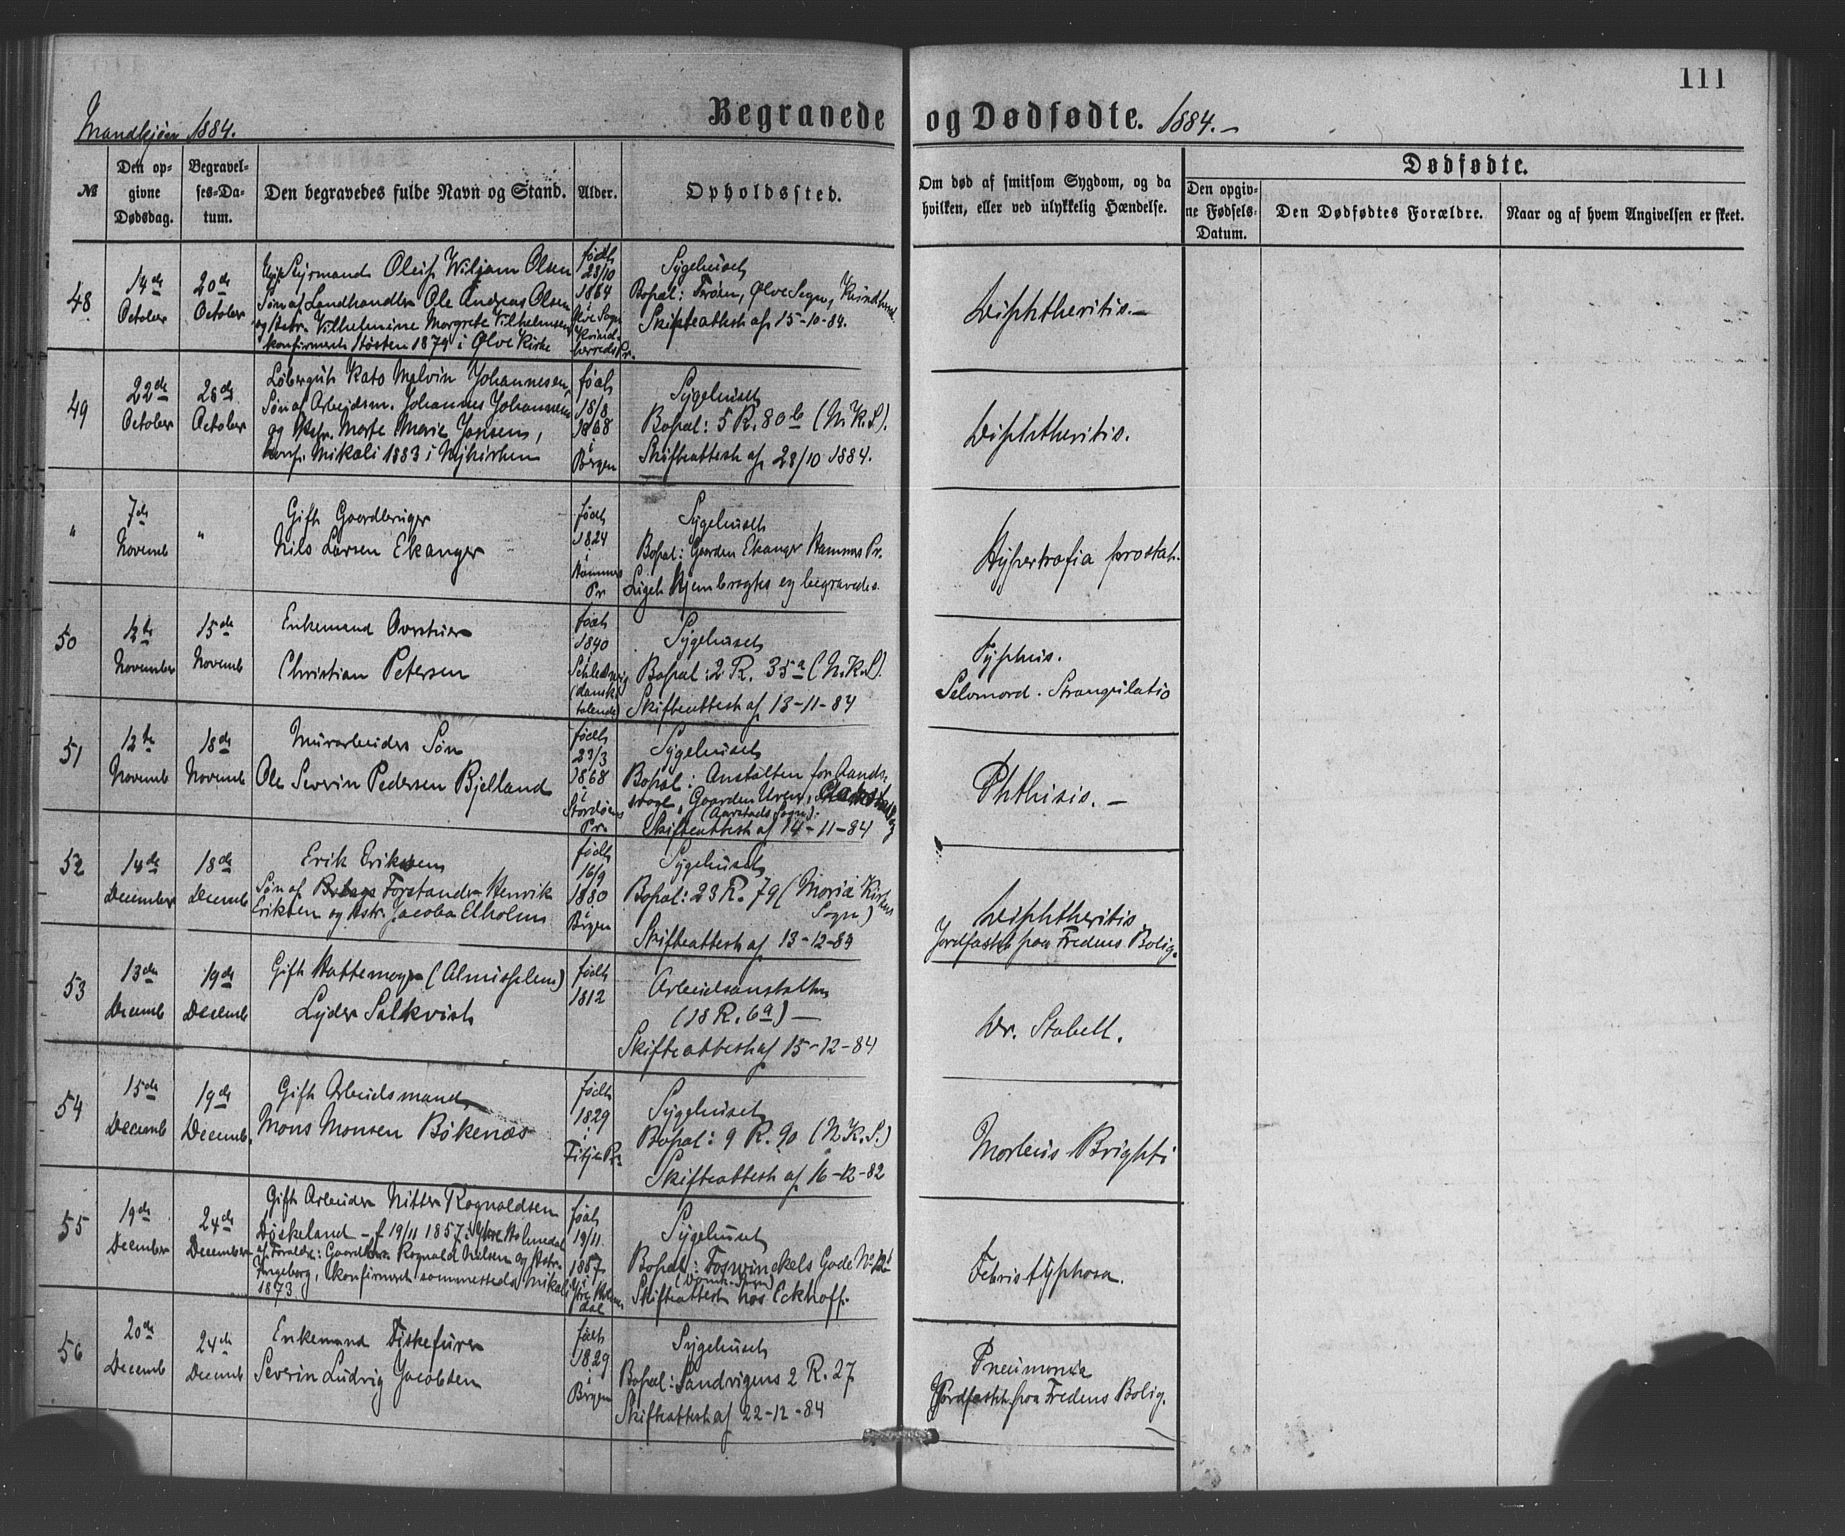 111
Mandkjøn 1884.
Begravede og Dødfødte. 1884.-
№
Den opgivne Dødsdag.
Begravelses-Datum.
Den begravedes fulde Navn og Stand.
Alder.
Opholdssted.
Om død af smitsom Sygdom, og da hvilken, eller ved ulykkelig Hændelse.
Dødfødte.
Den opgivne Fødsels-Datum.
Den Dødfødtes Forældre.
Naar og af hvem Angivelsen er skeet.
48
14de October
20de October
Styrmand Oleif Wiljam Olsen
Søn af Landhandler Ole Andreas Olsen
og Hstr. Vilhelmine Margrete Vilhelmsen
konfirmeret Høsten 1879 i Ølve Kirke
født 28/10 1864 i Ølve Sogn Kvindherreds Pr.
Sygehuset
Bopæl: Trøen, Ølve Sogn, Kvindherred.
Skifteattest af 15-10-84.
Diphtheritis.-
49
22de October
28de October
Løbergut Kato Melvin Johannesen,
Søn af Arbejdsm. Johannes Johannesen
og Hstr. Marte Marie Jonsen,
konf. Mikali 1883 i Nykirken
født 18/8 1868 i Bergen
Sygehuset
Bopæl: 5 R. 80 b (N.K.S).
Skifteattest af 28/10 1884.
Diphtheritis.
"
7de Novemb
"
Gift Gaardbruger
Nils Larsen Ekanger
født 1824 i Hammers Pr
Sygehuset
Bopæl: Gaarden Ekanger Hammers Pr.
Liget hjembragtes og begravedes.
Hypertrofia prostat.
50
12te November
15de Novemb
Enkemand Avretner
Christian Petersen
født 1840 Schleswig (dansktalende)
Sygehuset
Bopæl: 2 R. 35a (N.K.S).
Skifteattest af 13-11-84
Typhus.
Selvmord. Strangulatio
51
12te Novemb
18de Novemb
Murarbeiders Søn
Ole Severin Pedersen Bjelland
født 23/3 1868 i Stordøens Pr.
Sygehuset
Bopæl: Anstalten for Aands-
svage, Gaarden Urven,
(Aarstads Sogn).
Skifteattest af 14-11-84
Phthisis.-
52
14de December
18de Decemb
Erik Eriksen
Søn af Forstander Henrik
Eriksen og Hstr. Jacoba Elholm
født 16/9 1880 i Bergen
Sygehuset
Bopæl: 23 R. 79 (Maria Kirkes
Sogn)
Skifteattest af 13-12-84
Diphtheritis
Jordfæstet paa Fredens Bolig.
53
13de Decemb
19de Decemb
Gift Hattemager (Almisselem)
Lyder Salkvist
født 1812
Arbeidsanstalten
(18 R. 6a) -
Skifteattest af 15-12-84
Dr. Stabell.
54
15de Decemb
19de Decemb.
Gift Arbeidsmand,
Mons Monsen Bøkenæs
født 1829 i Fitje Pr.
Sygehuset
Bopæl: 9 R. 90 (N.K.S.)
Skifteattest af 16-12-82
Morbus Brighti
55
19de December
24de December
Gift Arbeider Nitter Rognaldsen
Døskeland - f 19/11 1857 i Ytre Holmedal
af Forældre: Gaardbr. Rognald Nilsen og Hstr.
Ingeborg, konfirmeret sammesteds Mikali
1873
født 19/11. 1857 i Ytre Holmedal
Sygehuset
Bopæl: Foswinckels Gade No 12
(Domk. Sogn)
Skifteattest hos Eckhoff.
Febris typhosa.
56
20de Decemb
24de Decemb
Enkemand Fiskefører
Severin Ludvig Jacobsen
født 1829 i Bergen
Sygehuset
Bopæl: Sandvigens 2 R. 27
Skifteattest af 22-12-84
Pneumonia
Jordfæstet paa Fredens Bolig.